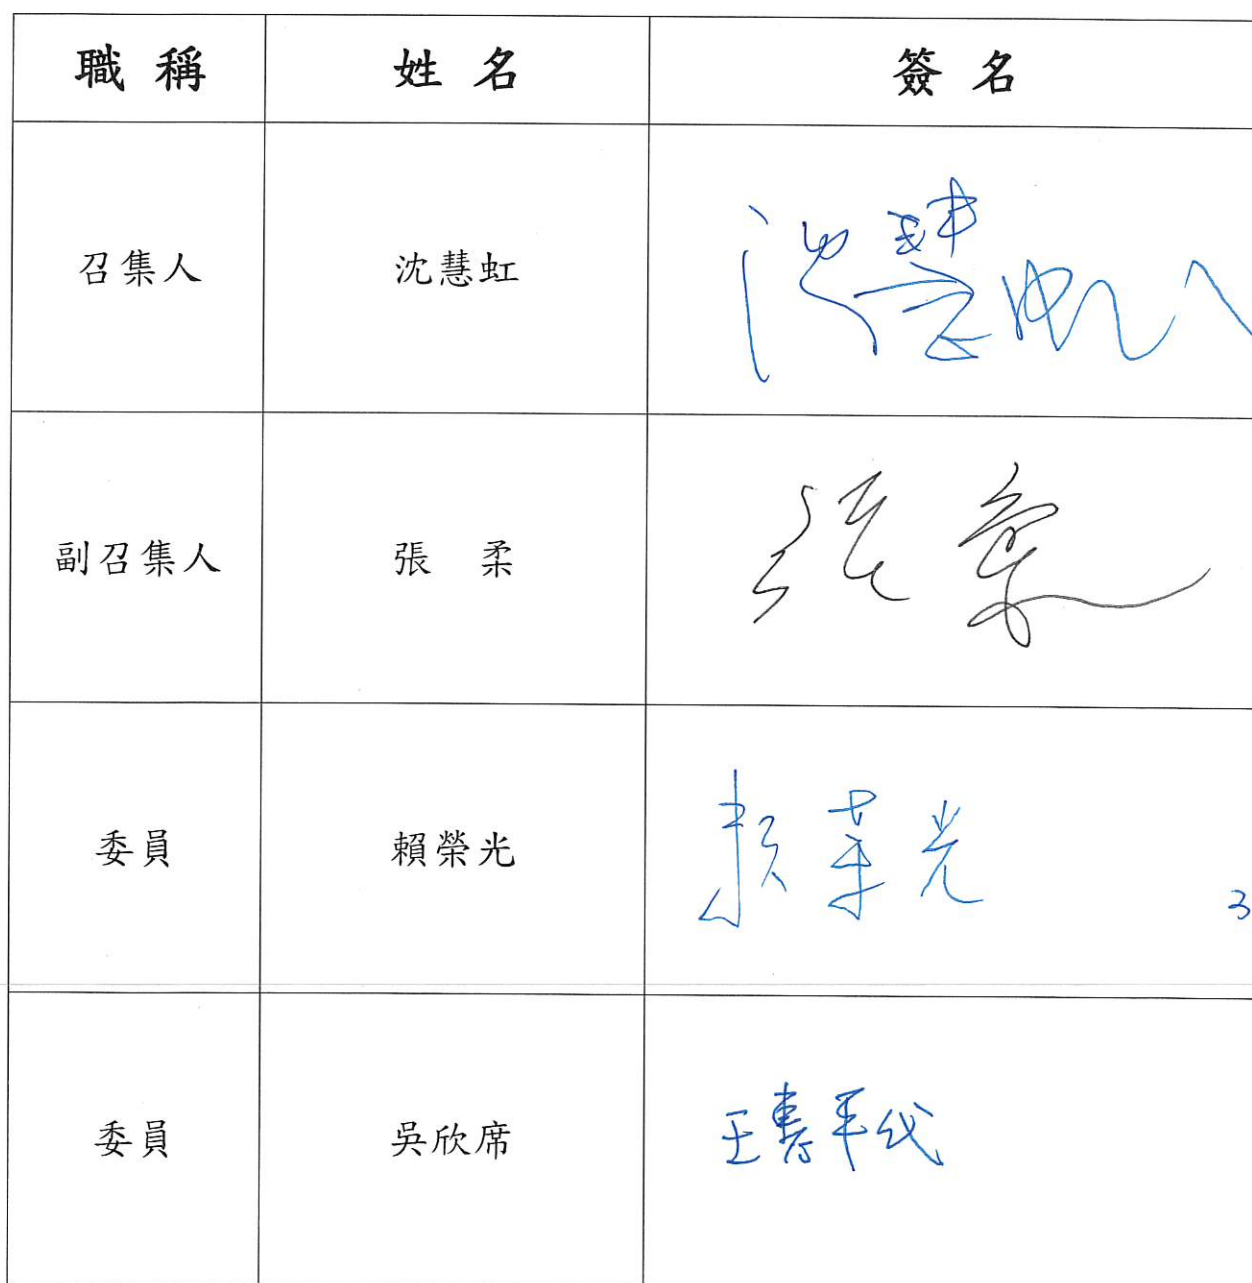 職稱 姓名 簽名
召集人 沈慧虹 沈慧虹
副召集人 張 柔 張柔
委員 賴榮光 賴榮光
委員 吳欣席 王壽年代